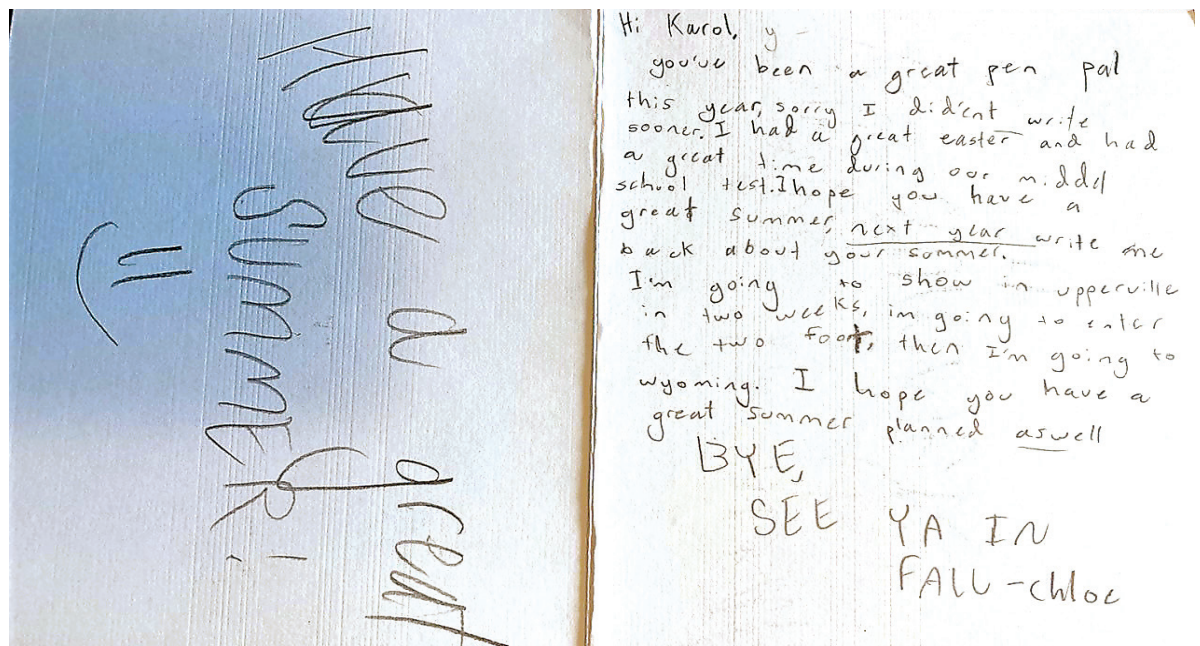 Have a great
summer!
Hi Karol, y -
you've been a great pen pal
this year, sorry I did'ent write
sooner. I had a great easter and had
a great time during our middel
school test. I hope you have a
great summer, next year write me
back about your summer.
I'm going to show in upperville
in two weeks, im going to enter
the two foot, then I'm going to
wyoming. I hope you have a
great summer planned aswell
BYE,
SEE YA IN
FALL -chloe